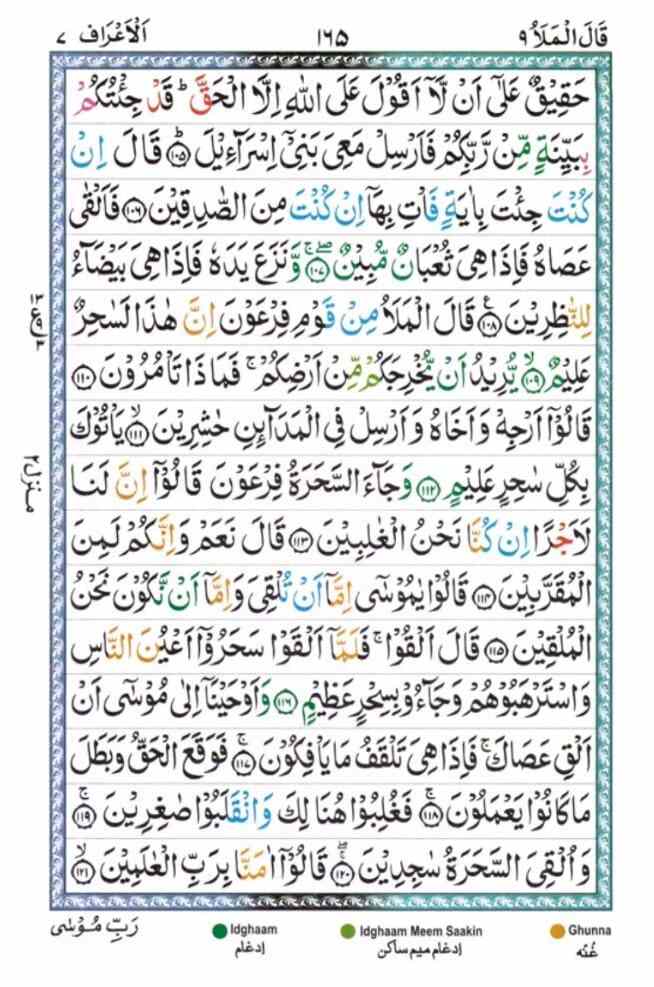 قَالَ الْمَلَاُ ٩ ١٦٥ اَلْاَعْرَاف ٧
حَقِيْقٌ عَلٰٓى اَنْ لَّاۤ اَقُوْلَ عَلَى اللّٰهِ اِلَّا الْحَقَّ ؕ قَدْ جِئْتُكُمْ
بِبَيِّنَةٍ مِّنْ رَّبِّكُمْ فَاَرْسِلْ مَعِىَ بَنِىْۤ اِسْرَآءِيْلَ ؕ ۝١٠٥ قَالَ اِنْ
كُنْتَ جِئْتَ بِاٰيَةٍ فَاْتِ بِهَاۤ اِنْ كُنْتَ مِنَ الصّٰدِقِيْنَ ۝١٠٦ فَاَلْقٰى
عَصَاهُ فَاِذَا هِىَ ثُعْبَانٌ مُّبِيْنٌ ۝١٠٧ وَّنَزَعَ يَدَهٗ فَاِذَا هِىَ بَيْضَآءُ
لِلنّٰظِرِيْنَ ۝١٠٨ ع قَالَ الْمَلَاُ مِنْ قَوْمِ فِرْعَوْنَ اِنَّ هٰذَا لَسٰحِرٌ
عَلِيْمٌ ۙ ۝١٠٩ يُّرِيْدُ اَنْ يُّخْرِجَكُمْ مِّنْ اَرْضِكُمْ ۚ فَمَاذَا تَاْمُرُوْنَ ۝١١٠
قَالُوْۤا اَرْجِهْ وَاَخَاهُ وَاَرْسِلْ فِى الْمَدَآئِنِ حٰشِرِيْنَ ۙ ۝١١١ يَاْتُوْكَ
بِكُلِّ سٰحِرٍ عَلِيْمٍ ۝١١٢ وَجَآءَ السَّحَرَةُ فِرْعَوْنَ قَالُوْۤا اِنَّ لَنَا
لَاَجْرًا اِنْ كُنَّا نَحْنُ الْغٰلِبِيْنَ ۝١١٣ قَالَ نَعَمْ وَاِنَّكُمْ لَمِنَ
الْمُقَرَّبِيْنَ ۝١١٤ قَالُوْا يٰمُوْسٰٓى اِمَّاۤ اَنْ تُلْقِىَ وَاِمَّاۤ اَنْ نَّكُوْنَ نَحْنُ
الْمُلْقِيْنَ ۝١١٥ قَالَ اَلْقُوْا ۚ فَلَمَّاۤ اَلْقَوْا سَحَرُوْۤا اَعْيُنَ النَّاسِ
وَاسْتَرْهَبُوْهُمْ وَجَآءُوْ بِسِحْرٍ عَظِيْمٍ ۝١١٦ وَاَوْحَيْنَاۤ اِلٰى مُوْسٰٓى اَنْ
اَلْقِ عَصَاكَ ۚ فَاِذَا هِىَ تَلْقَفُ مَا يَاْفِكُوْنَ ۚ ۝١١٧ فَوَقَعَ الْحَقُّ وَبَطَلَ
مَا كَانُوْا يَعْمَلُوْنَ ۚ ۝١١٨ فَغُلِبُوْا هُنَالِكَ وَانْقَلَبُوْا صٰغِرِيْنَ ۚ ۝١١٩
وَاُلْقِىَ السَّحَرَةُ سٰجِدِيْنَ ۝١٢٠ قَالُوْۤا اٰمَنَّا بِرَبِّ الْعٰلَمِيْنَ ۙ ۝١٢١
١٣
ع ٩
٣
منزل ٢
رَبِّ مُوْسٰى
Idghaam
اِدغام
Idghaam Meem Saakin
اِدغام میم ساکن
Ghunna
غُنّه